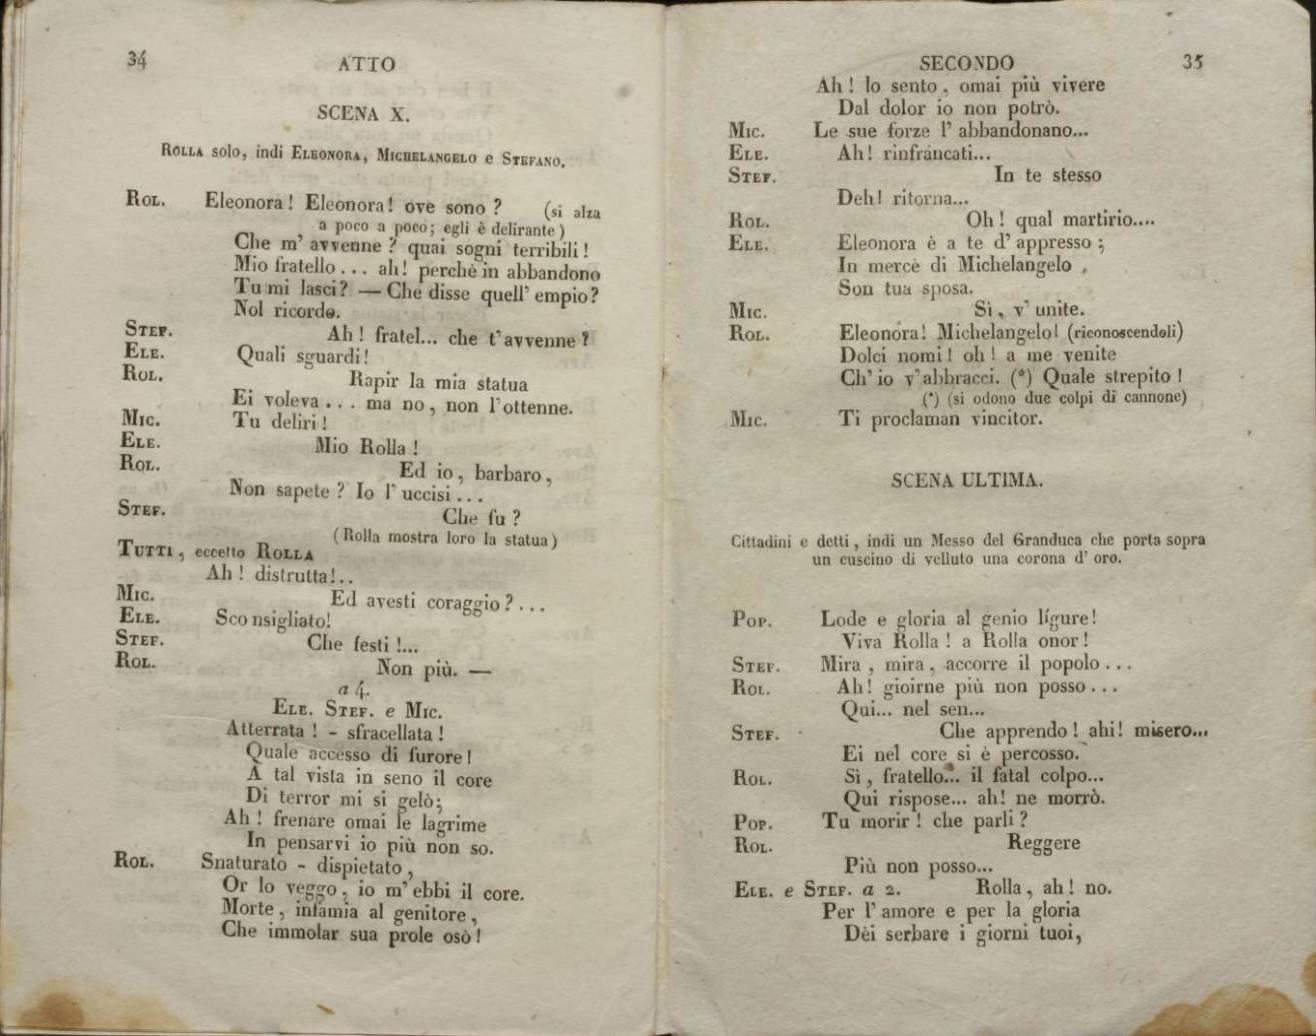 34
ATTO
SCENA X.
ROLLA solo, indi ELEONORA, MICHELANGELO e STEFANO.
ROL. Eleonora! Eleonora! ove sono? (si alza
a poco a poco; egli è delirante)
Che m' avvenne? quai sogni terribili!
Mio fratello... ah! perchè in abbandono
Tu mi lasci? — Che disse quell' empio?
Nol ricordo.
STEF. Ah! fratel... che t'avvenne?
ELE. Quali sguardi!
ROL. Rapir la mia statua
Ei voleva... ma no, non l'ottenne.
MIC. Tu deliri!
ELE. Mio Rolla!
ROL. Ed io, barbaro,
Non sapete? Io l'uccisi...
STEF. Che fu?
(Rolla mostra loro la statua)
TUTTI, eccetto ROLLA
Ah! distrutta!..
MIC. Ed avesti coraggio?...
ELE. Sconsigliato!
STEF. Che festi!...
ROL. Non più. —
a 4.
ELE. STEF. e MIC.
Atterrata! - sfracellata!
Quale accesso di furore!
A tal vista in seno il core
Di terror mi si gelò;
Ah! frenare omai le lagrime
In pensarvi io più non so.
ROL. Snaturato - dispietato,
Or lo veggo, io m'ebbi il core.
Morte, infamia al genitore,
Che immolar sua prole osò!
SECONDO
35
Ah! lo sento, omai più vivere
Dal dolor io non potrò.
MIC. Le sue forze l'abbandonano...
ELE. Ah! rinfrancati...
STEF. In te stesso
Deh! ritorna...
ROL. Oh! qual martirio....
ELE. Eleonora è a te d'appresso;
In mercè di Michelangelo,
Son tua sposa.
MIC. Sì, v'unite.
ROL. Eleonora! Michelangelo! (riconoscendoli)
Dolci nomi! oh! a me venite
Ch'io v'abbracci. (*) Quale strepito!
(*) (si odono due colpi di cannone)
MIC. Ti proclaman vincitor.
SCENA ULTIMA.
Cittadini e detti, indi un Messo del Granduca che porta sopra
un cuscino di velluto una corona d'oro.
POP. Lode e gloria al genio lígure!
Viva Rolla! a Rolla onor!
STEF. Mira, mira, accorre il popolo...
ROL. Ah! gioirne più non posso...
Qui... nel sen...
STEF. Che apprendo! ahi! misero...
Ei nel core si è percosso.
ROL. Sì, fratello... il fatal colpo...
Qui rispose... ah! ne morrò.
POP. Tu morir! che parli?
ROL. Reggere
Più non posso...
ELE. e STEF. a 2. Rolla, ah! no.
Per l'amore e per la gloria
Dèi serbare i giorni tuoi,